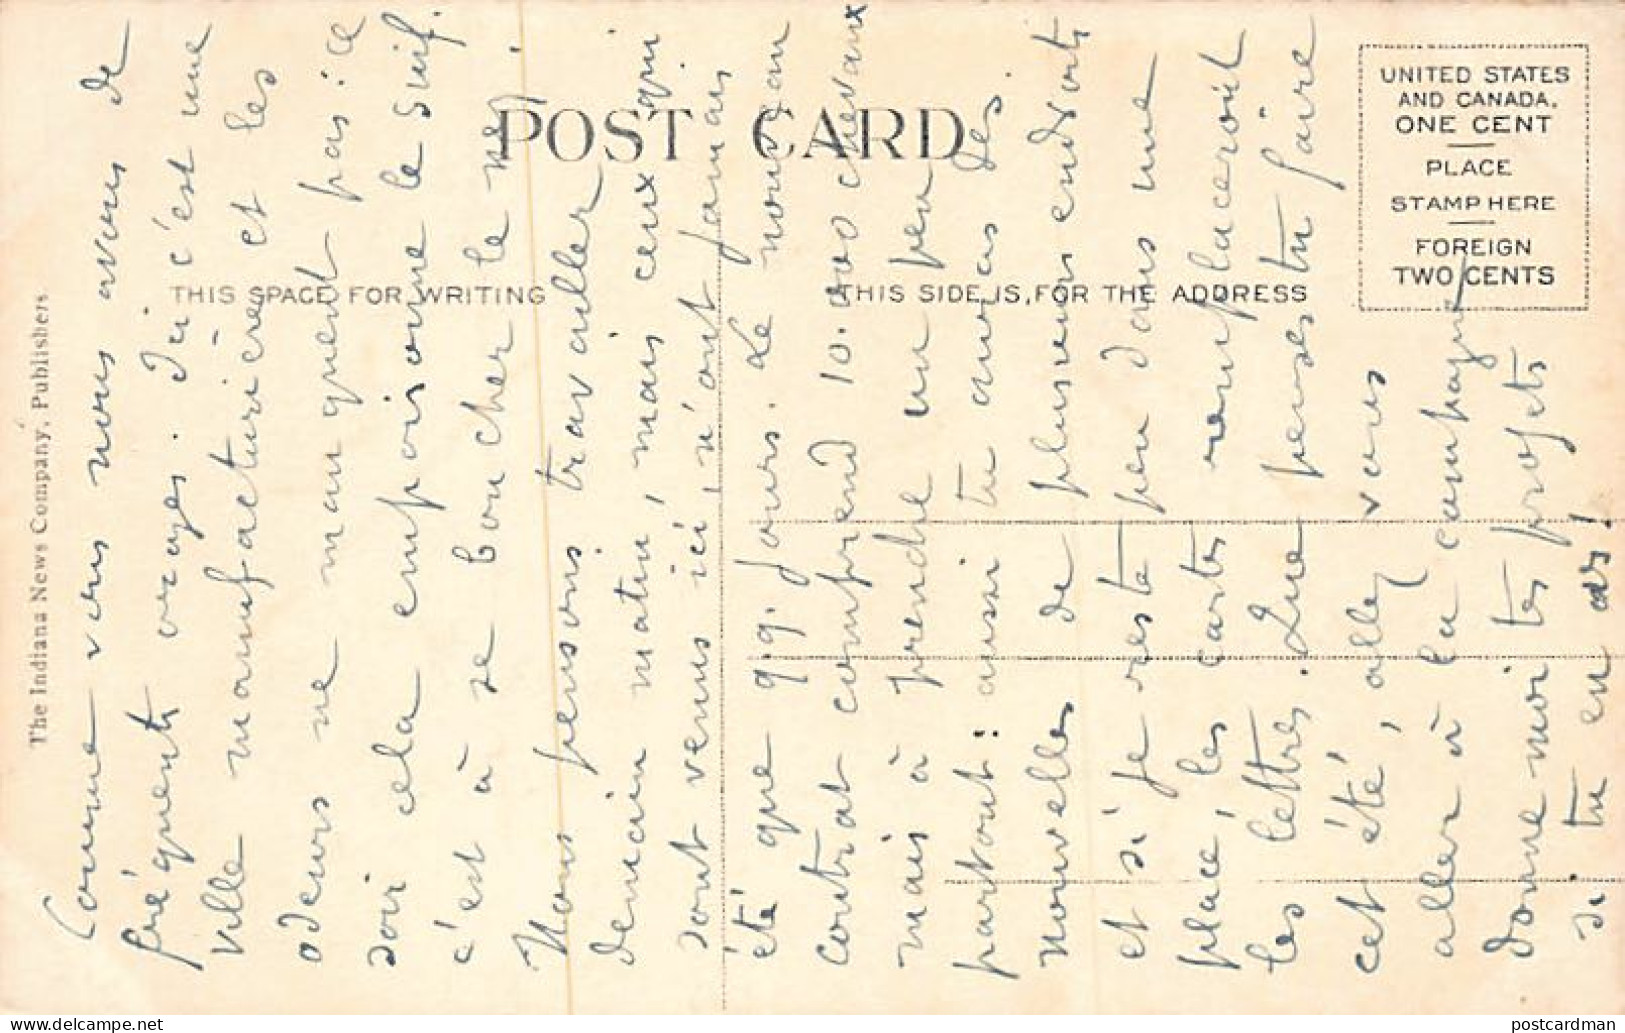 The Indiana News Company, Publishers
POST CARD
THIS SPACE FOR WRITING
THIS SIDE IS FOR THE ADDRESS
UNITED STATES
AND CANADA.
ONE CENT
PLACE
STAMP HERE
FOREIGN
TWO CENTS
Comme vous nous avons de
fréquents orages. Ici c'est une
ville manufacturière et les
odeurs ne manquent pas : ce
soir cela empoisonne le suif.
c'est à se boucher le nez !
Nous pensons travailler
demain matin, mais ceux qui
sont venus ici, n'ont jamais
été que 9.9. jours. Le nouveau
contrat comprend 10.000 chevaux
mais à prendre un peu
partout : aussi tu auras des
nouvelles de plusieurs endroits
et si je reste peu dans une
place, les cartes remplaceroit
les lettres. Que penses tu faire
cet été, allez vous
aller à la campagne
donne moi tes projets
si tu en as !
postcardman